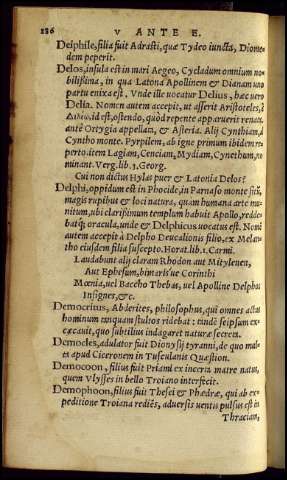 186 V ANTE E.
Deiphile, filia fuit Adrasti, quæ Tydeo iuncta, Diome-
dem peperit.
Delos, insula est in mari Aegeo, Cycladum omnium no-
bilissima, in qua Latona Apollinem & Dianam uno
partu enixa est, Vnde ille uocatur Delius, hæc uero
Delia. Nomen autem accepit, ut asserit Aristoteles, à
id est, ostendo, quòd repente apparuerit renata.
antè Ortygia appellata, & Asteria. Alij Cynthiam, à
Cyntho monte. Pyrpilem, ab igne primum ibidem re-
perto. item Lagiam, Mydiam, Cynethum, no-
minant. Verg. lib. 3. Georg.
Cui non dictus Hylas puer & Latonia Delos?
Delphi, oppidum est in Phocide, in Parnaso monte
magis rupibus & loci natura, quàm humana arte mu-
nitum, ubi clarissimum templum habuit Apollo, redde-
batq; oracula, unde & Delphicus uocatus est. Nomē
autem accepit à Delpho Deucalionis filio, ex Melan-
tho eiusdem filia suscepto. Horat. lib. 1. Carmi.
Laudabunt alij claram Rhodon aut Mitylenen,
Aut Ephesum, bimaris'ue Corinthi
Mœnia, uel Baccho Thebas, uel Apolline Delphos
Insignes, &c.
Democritus, Abderites, philosophus, qui omnes actus
hominum tanquam stultos ridebat: tandē seipsum ex-
cæcauit, quo subtilius indagaret naturæ secreta.
Democles, adulator fuit Dionysij tyranni, de quo mul-
ta apud Ciceronem in Tusculanis Quæstion.
Democoon, filius fuit Priami ex incerta matre natus,
quem Vlysses in bello Troiano interfecit.
Demophoon, filius fuit Thesei & Phædræ, qui ab ex-
peditione Troiana rediēs, aduersis ventis pulsus est in
Thraciam,